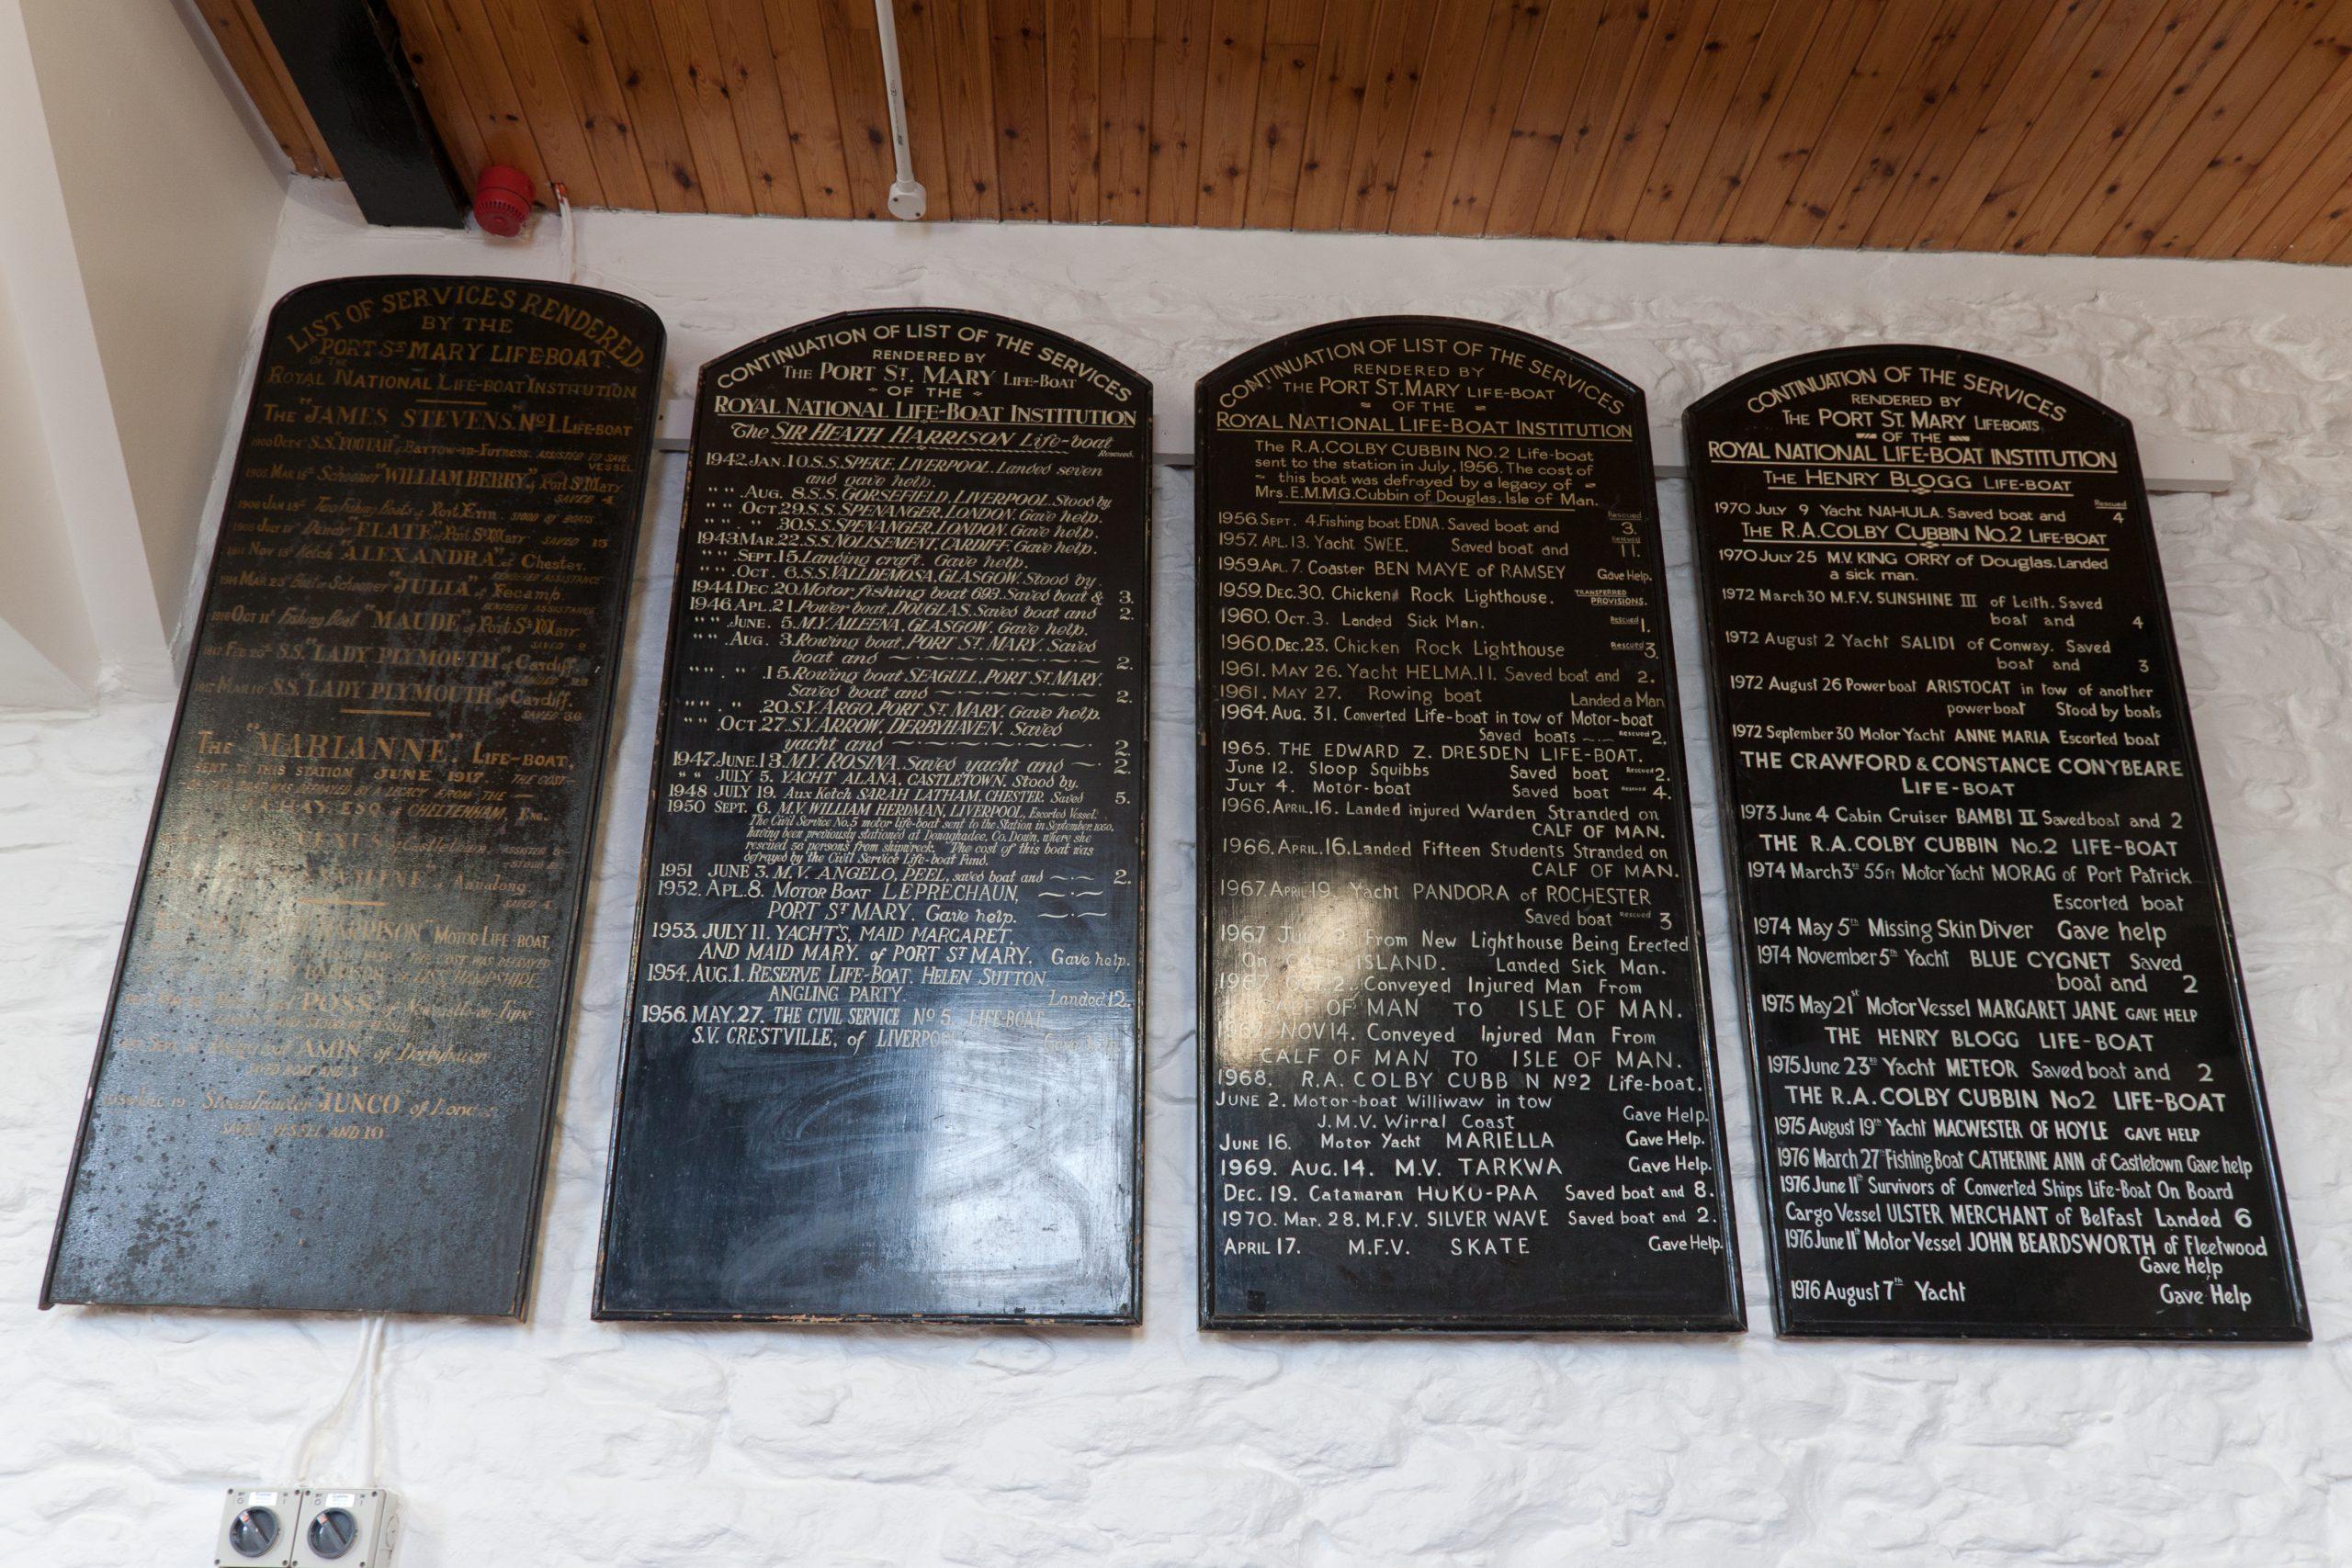 LIST OF SERVICES RENDERED
BY THE
PORT ST MARY LIFE-BOAT
OF THE
ROYAL NATIONAL LIFE-BOAT INSTITUTION
THE "JAMES STEVENS" No 1. LIFE-BOAT
of Barrow-in-Furness. ASSISTED TO SAVE
VESSEL
MAR. Schooner "WILLIAM BERRY" of Port St Mary
SAVED 4
JAN 15th Two Fishing Boats of Port Erin. STOOD BY BOATS
of Port St Mary SAVED
Nov 15th Ketch "ALEXANDRA" of Chester.
RENDERED ASSISTANCE
MAR 23rd Schooner "JULIA" of Fecamp.
RENDERED ASSISTANCE
Oct 11th Fishing Boat "MAUDE" of Port St Mary.
SAVED 2
FEB S.S. "LADY PLYMOUTH" of Cardiff.
MAR S.S. "LADY PLYMOUTH" of Cardiff.
SAVED 36
THE "MARIANNE" LIFE-BOAT,
SENT TO THIS STATION JUNE 1917. THE COST
A LEGACY FROM THE
HAY ESQ of CHELTENHAM, ENG.
of Castletown
of Annalong
SAVED 4
HARRISON" MOTOR LIFE-BOAT,
THE COST WAS DEFRAYED
HARRISON of EAST HAMPSHIRE
of Newcastle-on-Tyne
"AMIN" of Derbyhaven
SAVED BOAT AND 3
Steam Trawler "JUNCO" of London
SAVED VESSEL AND 10
CONTINUATION OF LIST OF THE SERVICES
RENDERED BY
THE PORT ST. MARY LIFE-BOAT
OF THE
ROYAL NATIONAL LIFE-BOAT INSTITUTION
The SIR HEATH HARRISON Life-boat
Rescued.
1942. JAN. 10. S.S. SPEKE, LIVERPOOL. Landed seven
and gave help.
" " . AUG. 8. S.S. GORSEFIELD, LIVERPOOL. Stood by
" " . OCT. 29. S.S. SPENANGER, LONDON. Gave help.
" " . " 30. S.S. SPENANGER, LONDON. Gave help.
1943. MAR. 22. S.S. NOLISEMENT, CARDIFF. Gave help.
" " . SEPT. 15. Landing craft. Gave help.
" " . OCT. 6. S.S. VALLDEMOSA, GLASGOW. Stood by.
1944. DEC. 20. Motor fishing boat 693. Saved boat & 3.
1946. APL. 21. Power boat, DOUGLAS. Saved boat and 2.
" " . JUNE. 5. M.Y. AILEENA, GLASGOW. Gave help.
" " . AUG. 3. Rowing boat, PORT ST. MARY. Saved
boat and 2.
" " . " . 15. Rowing boat SEAGULL, PORT ST. MARY.
Saved boat and 2.
" " . " . 20. S.Y. ARGO, PORT ST. MARY. Gave help.
" " . OCT. 27. S.Y. ARROW, DERBYHAVEN. Saved
yacht and 2.
1947. JUNE. 13. M.Y. ROSINA. Saved yacht and 2.
" " JULY 5. YACHT ALANA, CASTLETOWN. Stood by.
1948 JULY 19. Aux Ketch SARAH LATHAM, CHESTER. Saved 5.
1950 SEPT. 6. M.V. WILLIAM HERDMAN, LIVERPOOL, Escorted Vessel.
The Civil Service No.5 motor life-boat sent to the Station in September 1950,
having been previously stationed at Donaghadee, Co. Down, where she
rescued 56 persons from shipwreck. The cost of this boat was
defrayed by the Civil Service Life-boat Fund.
1951 JUNE 3. M.V. ANGELO, PEEL, saved boat and 2.
1952. APL. 8. MOTOR BOAT LEPRECHAUN,
PORT ST MARY. Gave help.
1953. JULY 11. YACHT'S, MAID MARGARET,
AND MAID MARY. of PORT ST MARY. Gave help.
1954. AUG. 1. RESERVE LIFE-BOAT. HELEN SUTTON.
ANGLING PARTY. Landed 12.
1956. MAY. 27. THE CIVIL SERVICE No 5. LIFE-BOAT.
S.V. CRESTVILLE, of LIVERPOOL Gave help
CONTINUATION OF LIST OF THE SERVICES
RENDERED BY
THE PORT ST. MARY LIFE-BOAT
OF THE
ROYAL NATIONAL LIFE-BOAT INSTITUTION
The R.A. COLBY CUBBIN NO. 2 Life-boat
sent to the station in July, 1956. The cost of
this boat was defrayed by a legacy of
Mrs. E.M.M.G. Cubbin of Douglas, Isle of Man.
1956. SEPT. 4. Fishing boat EDNA. Saved boat and Rescued 3.
1957. APL. 13. Yacht SWEE. Saved boat and Rescued 11.
1959. APL. 7. Coaster BEN MAYE of RAMSEY Gave Help.
1959. DEC. 30. Chicken Rock Lighthouse. TRANSFERRED PROVISIONS.
1960. OCT. 3. Landed Sick Man. Rescued 1.
1960. DEC. 23. Chicken Rock Lighthouse Rescued 3.
1961. MAY 26. Yacht HELMA. 11. Saved boat and 2.
1961. MAY 27. Rowing boat Landed a Man
1964. AUG. 31. Converted Life-boat in tow of Motor-boat
Saved boats Rescued 2.
1965. THE EDWARD Z. DRESDEN LIFE-BOAT.
June 12. Sloop Squibbs Saved boat Rescued 2.
JULY 4. Motor-boat Saved boat Rescued 4.
1966. APRIL. 16. Landed injured Warden Stranded on
CALF OF MAN.
1966. APRIL. 16. Landed Fifteen Students Stranded on
CALF OF MAN.
1967 APRIL 19. Yacht PANDORA of ROCHESTER
Saved boat Rescued 3
1967 JULY 2. From New Lighthouse Being Erected
On ISLAND. Landed Sick Man.
1967 OCT. 2. Conveyed Injured Man From
CALF OF MAN TO ISLE OF MAN.
1967 NOV 14. Conveyed Injured Man From
CALF OF MAN TO ISLE OF MAN.
1968. R.A. COLBY CUBB N No2 Life-boat.
JUNE 2. Motor-boat Williwaw in tow
J.M.V. Wirral Coast Gave Help.
JUNE 16. Motor Yacht MARIELLA Gave Help.
1969. AUG. 14. M.V. TARKWA Gave Help.
DEC. 19. Catamaran HUKU-PAA Saved boat and 8.
1970. MAR. 28. M.F.V. SILVER WAVE Saved boat and 2.
APRIL 17. M.F.V. SKATE Gave Help.
CONTINUATION OF THE SERVICES
RENDERED BY
THE PORT ST. MARY LIFE-BOATS
OF THE
ROYAL NATIONAL LIFE-BOAT INSTITUTION
THE HENRY BLOGG LIFE-BOAT
Rescued
1970 JULY 9 Yacht NAHULA. Saved boat and 4
THE R.A. COLBY CUBBIN NO. 2 LIFE-BOAT
1970 JULY 25 M.V. KING ORRY of Douglas. Landed
a sick man.
1972 March 30 M.F.V. SUNSHINE III of Leith. Saved
boat and 4
1972 August 2 Yacht SALIDI of Conway. Saved
boat and 3
1972 August 26 Power boat ARISTOCAT in tow of another
power boat Stood by boats
1972 September 30 Motor Yacht ANNE MARIA Escorted boat
THE CRAWFORD & CONSTANCE CONYBEARE
LIFE-BOAT
1973 June 4 Cabin Cruiser BAMBI II Saved boat and 2
THE R.A. COLBY CUBBIN No. 2 LIFE-BOAT
1974 March 3rd 55ft Motor Yacht MORAG of Port Patrick
Escorted boat
1974 May 5th Missing Skin Diver Gave help
1974 November 5th Yacht BLUE CYGNET Saved
boat and 2
1975 May 21st Motor Vessel MARGARET JANE GAVE HELP
THE HENRY BLOGG LIFE-BOAT
1975 June 23rd Yacht METEOR Saved boat and 2
THE R.A. COLBY CUBBIN No2 LIFE-BOAT
1975 August 19th Yacht MACWESTER OF HOYLE GAVE HELP
1976 March 27th Fishing Boat CATHERINE ANN of Castletown Gave help
1976 June 11th Survivors of Converted Ships Life-Boat On Board
Cargo Vessel ULSTER MERCHANT of Belfast Landed 6
1976 June 11th Motor Vessel JOHN BEARDSWORTH of Fleetwood
Gave Help
1976 August 7th Yacht Gave Help